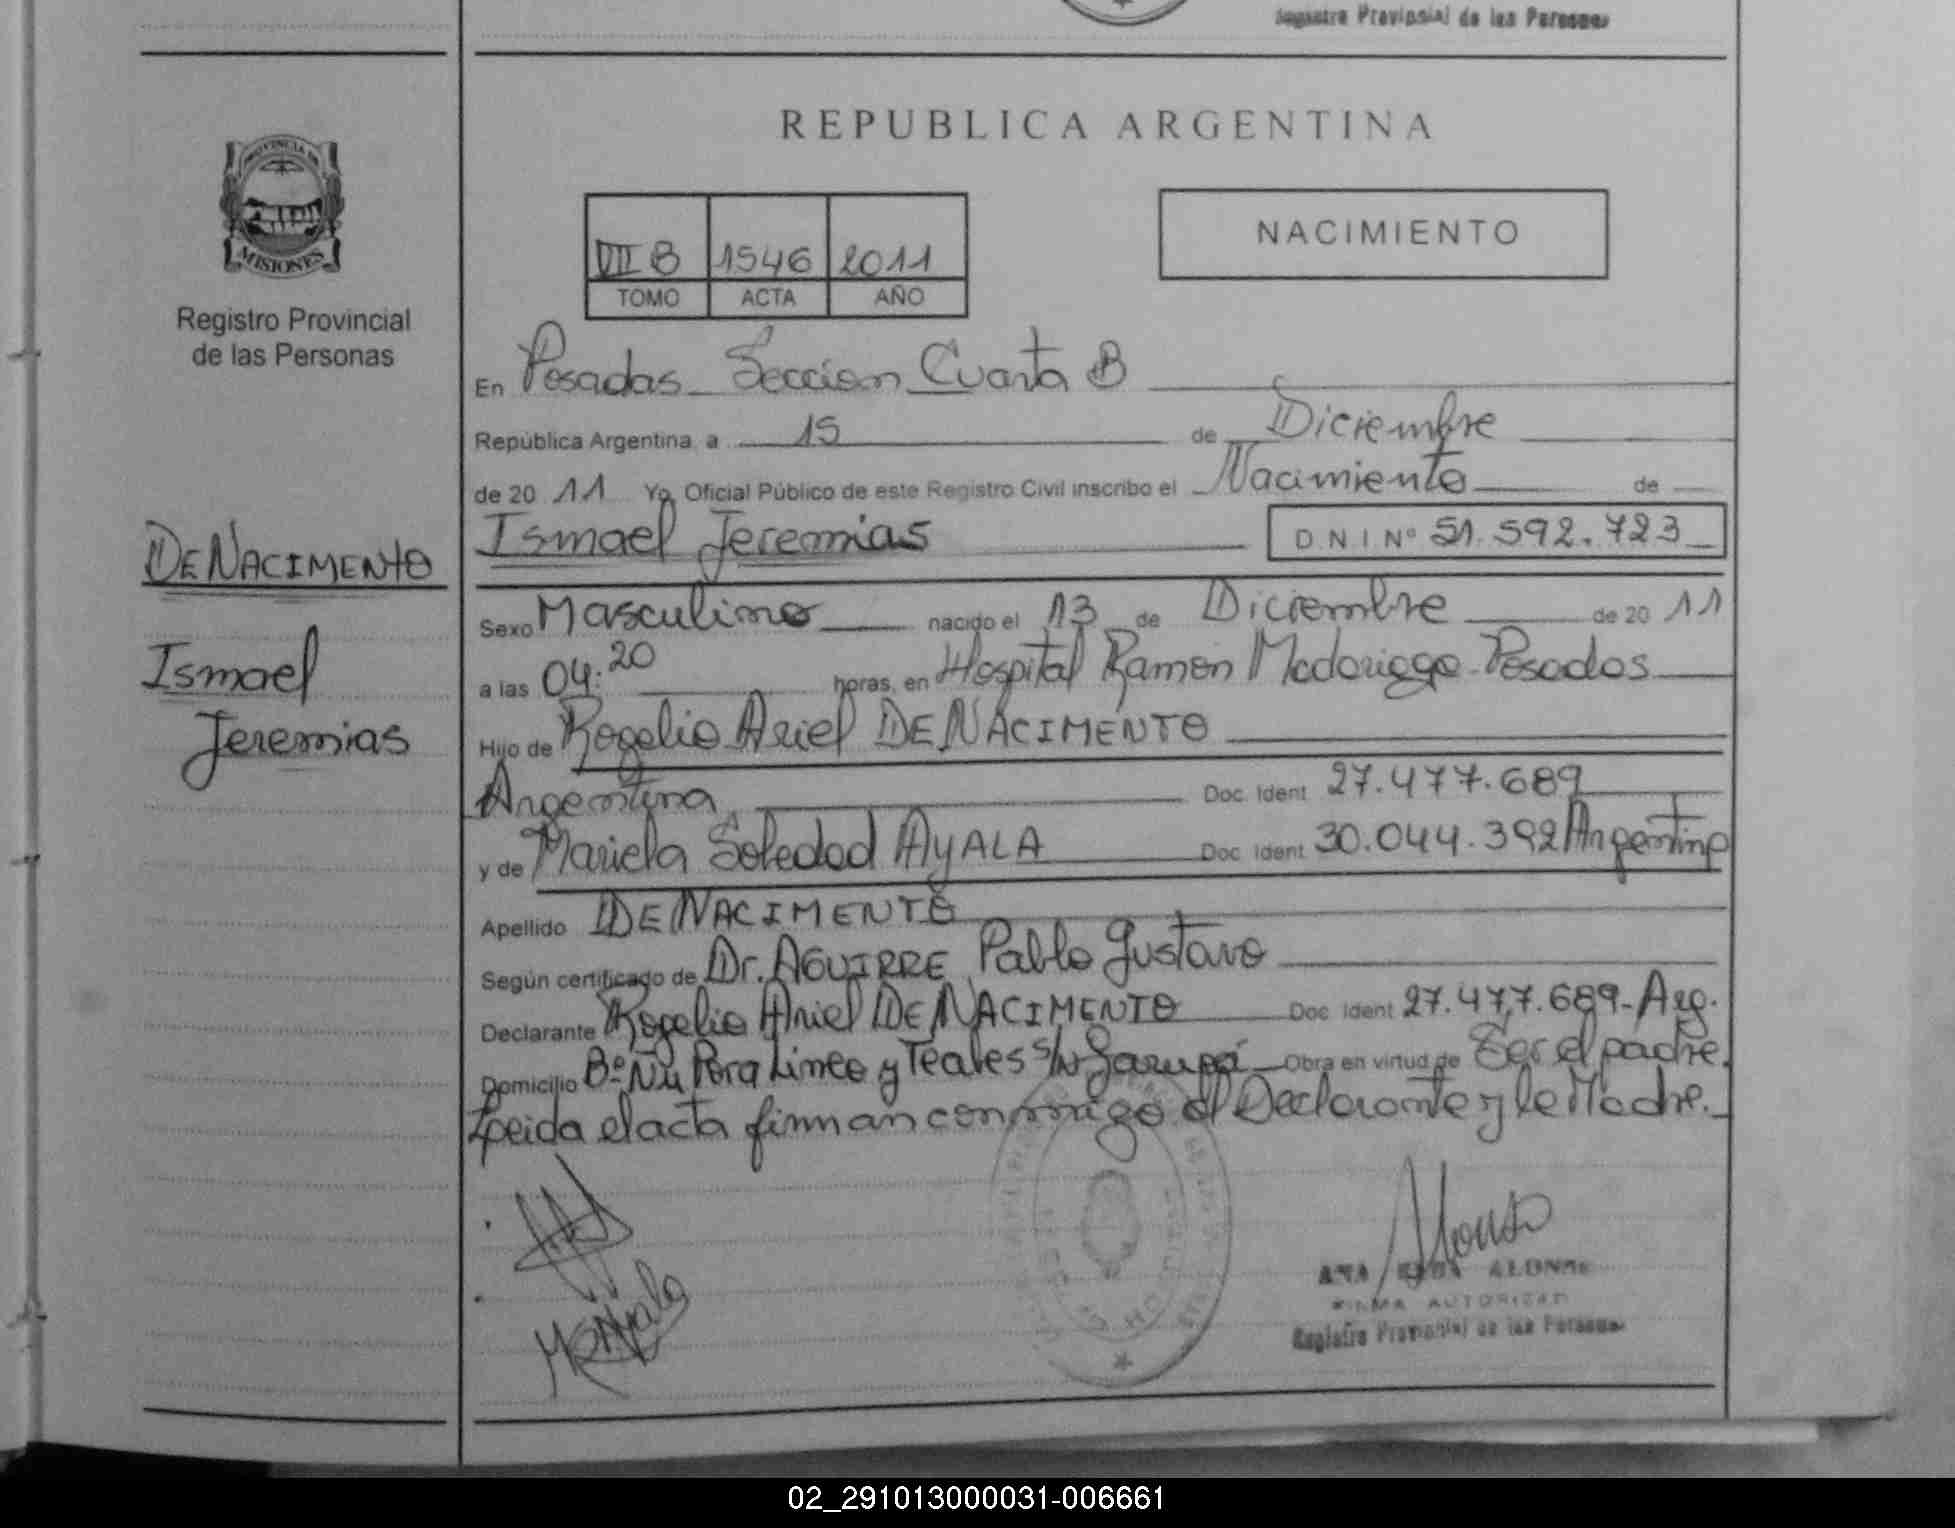 Registro Provincial de las Personas
REPUBLICA ARGENTINA
PROVINCIA DE
MISIONES
Registro Provincial
de las Personas
VII B 1546 2011
TOMO ACTA AÑO
NACIMIENTO
En Posadas Seccion Cuarta B
República Argentina, a 15 de Diciembre
de 20 11 Yo, Oficial Público de este Registro Civil inscribo el Nacimiento de
Ismael Jeremias D.N.I. Nº 51.592.723
DE NACIMENTO
Ismael
Jeremias
Sexo Masculino nacido el 13 de Diciembre de 20 11
a las 04:20 horas, en Hospital Ramon Madariaga - Posadas
Hijo de Rogelio Ariel DE NACIMENTO
Argentina Doc. Ident 27.477.689
y de Mariela Soledad AYALA Doc. Ident 30.044.392 Argentina
Apellido DE NACIMENTO
Según certificado de Dr. AGUIRRE Pablo Gustavo
Declarante Rogelio Ariel DE NACIMENTO Doc. Ident 27.477.689 - Arg.
Domicilio Bº Ñu Pora Lineo y Teales S/N Garupá Obra en virtud de Ser el padre.
Leida el acta firman conmigo el Declarante y la Madre.
ALONSO
FIRMA AUTORIZAD
Registro Provincial de las Personas
02_291013000031-006661